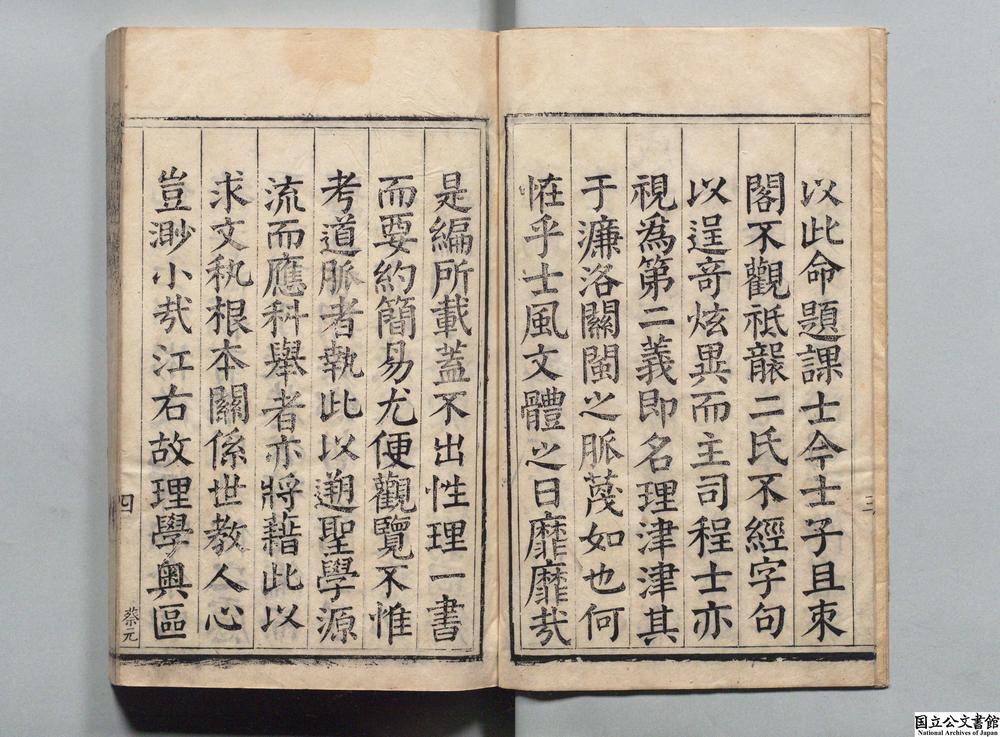 以此命題課士今士子且束
閣不觀袛襲二氏不經字句
以逞竒炫異而主司程士亦
視為第二義即名理津津其
于濂洛關閩之脈茂如也何
怪乎士風文體之日靡靡㢤
三
是編所載蓋不出性理一書
而要約簡易尤便觀覽不惟
考道脈者執此以遡聖學源
流而應科舉者亦將藉此以
求文秇根本關係世教人心
豈渺小㢤江右故理學奧區
四
蔡元
国立公文書館
National Archives of Japan